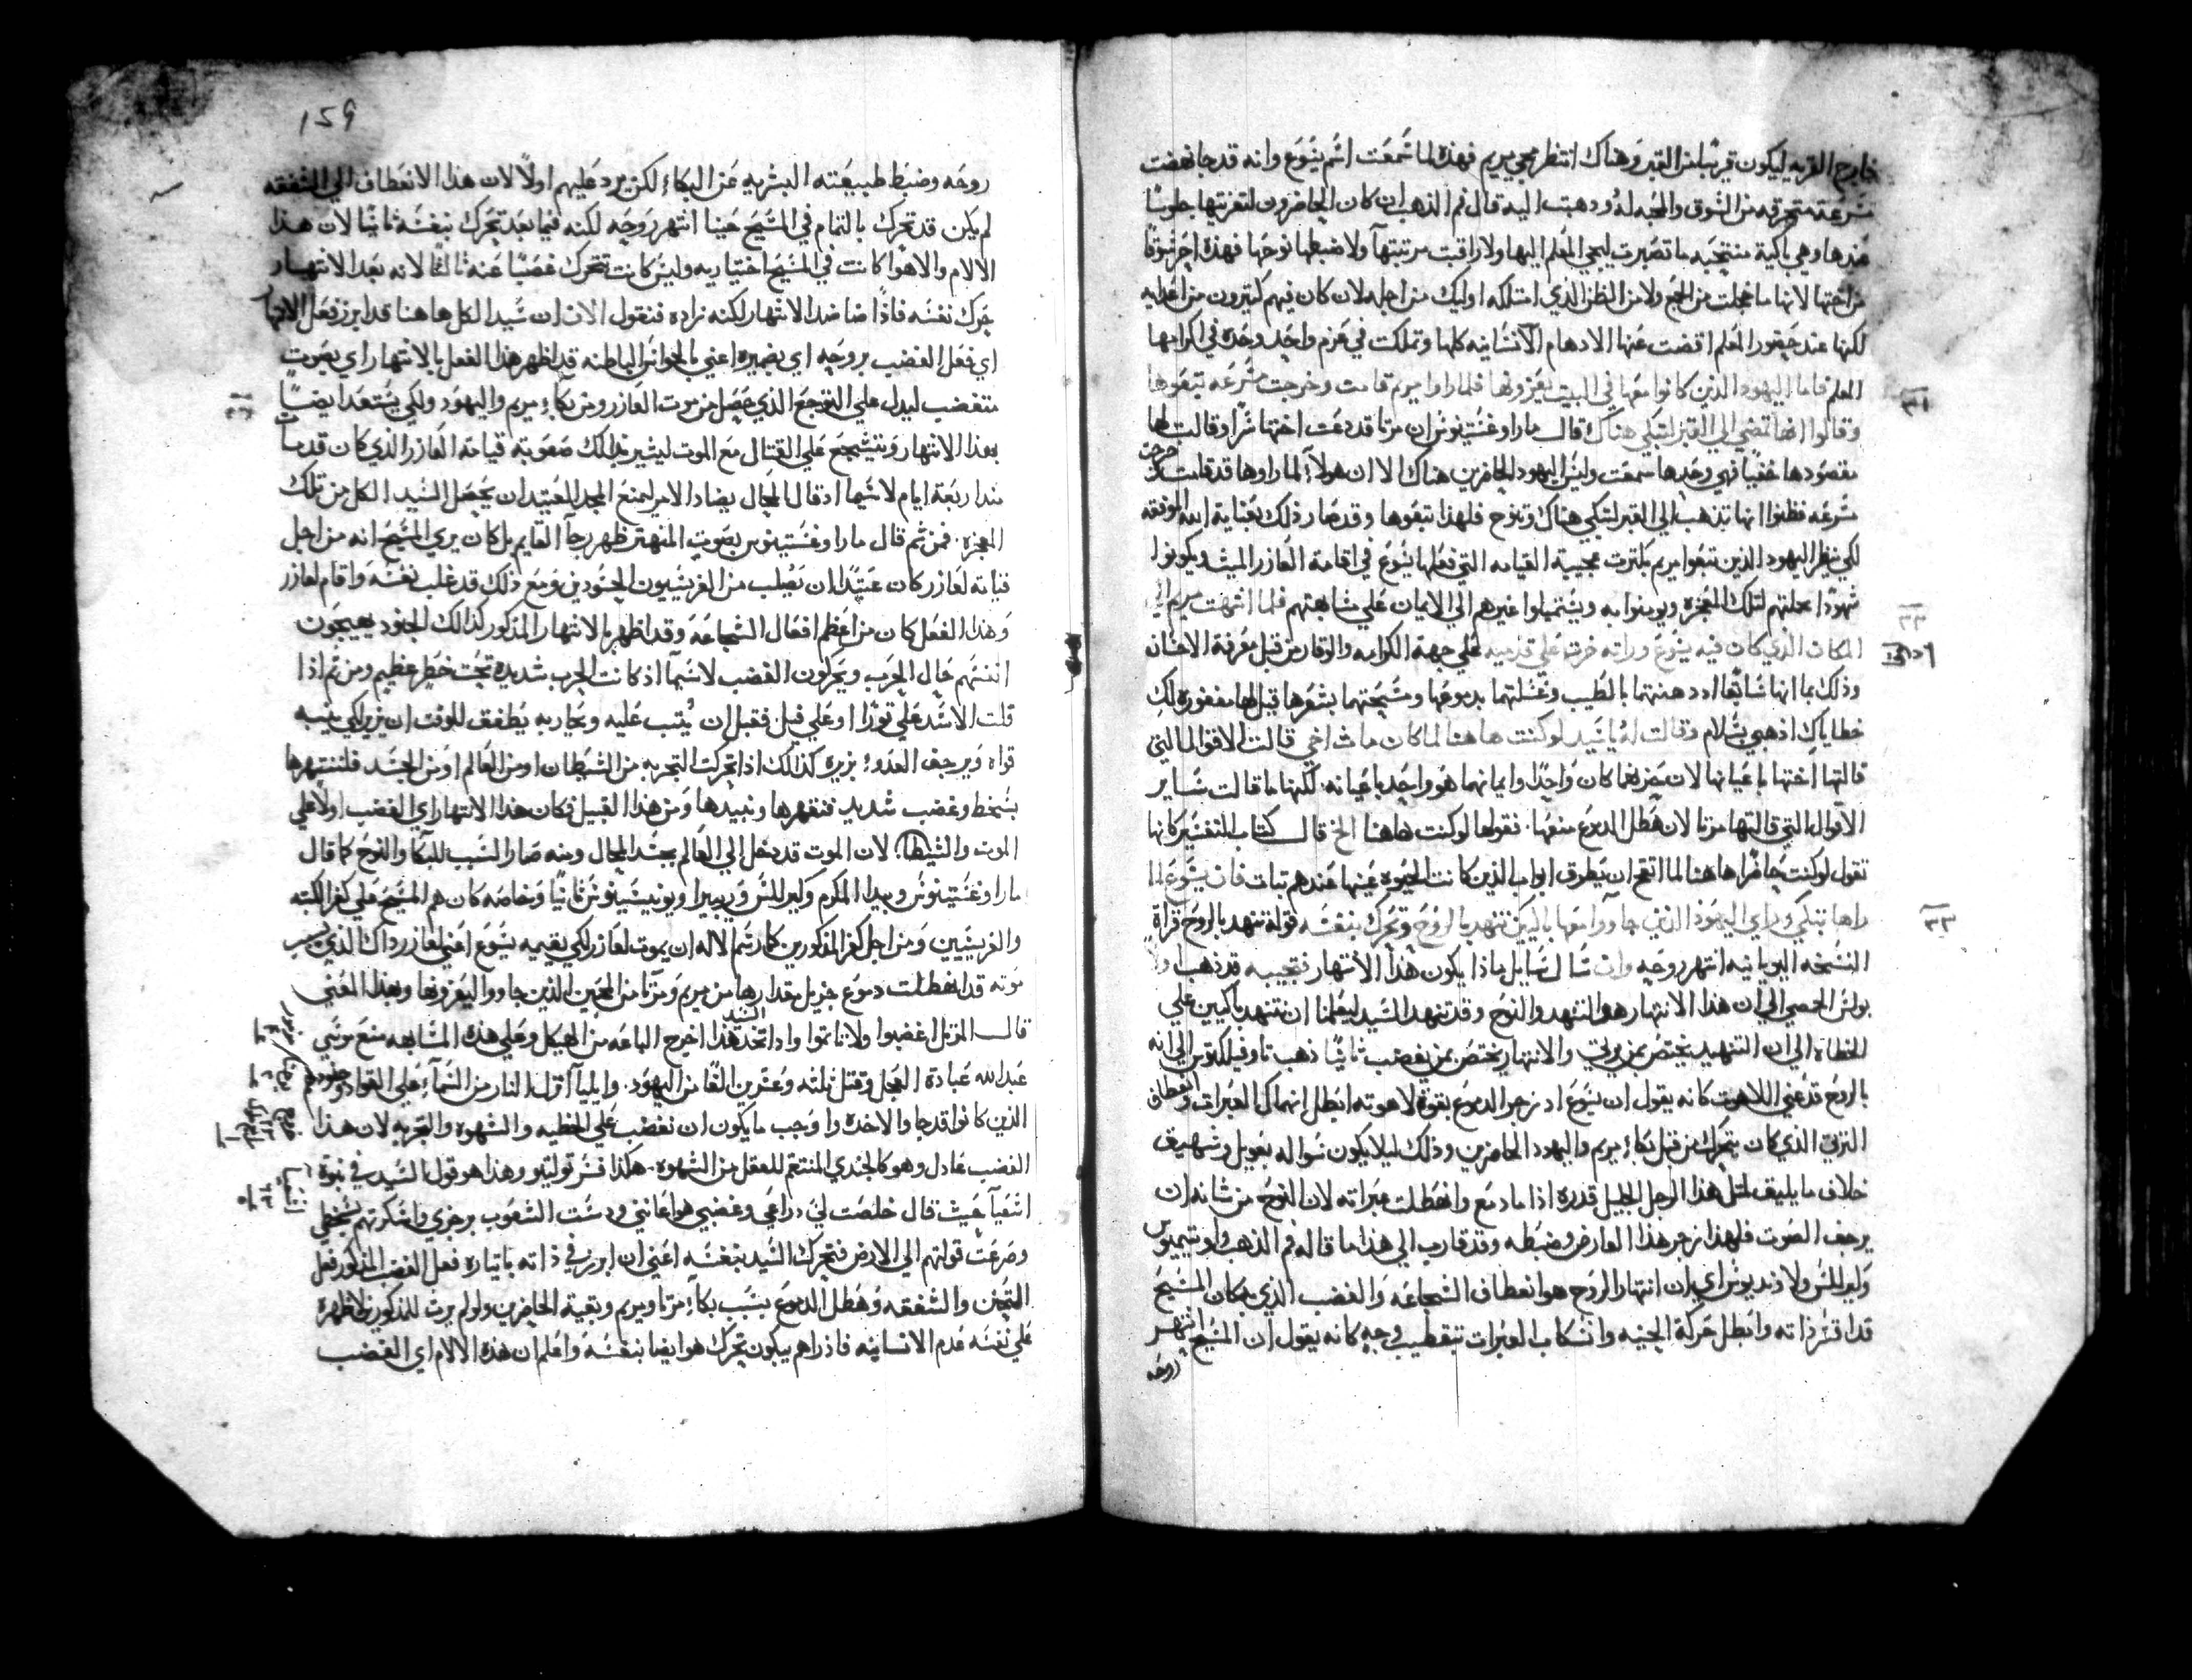 خارج القريه ليكون قريبًا من القبر وهناك انتظر مجي مريم فهذه لما سمعت اسم يسوع وانه قد جا نهضت
مسرعة متحرقه من الشوق والمحبه له وذهبت اليه قال فم الذهب ان كان الحاضرون لتعزيتها جلوسًا
عندها وهي باكية منتحبه ما تصبرت ليجي المعلم اليها ولا راقبت مرتبتها ولا ضبطها نوحها فهذه احر شوقًا
من اختها لانها ما خجلت من الجمع ولا من الظن الذي امتلكه اوليك من اجله لان كان فيهم كثيرون من اعدايه
لكنها عند حضور المعلم اقصت عنها الاوهام الانسانيه كلها وتملكت في عزم واحد وحده في اكرامها
المعلم فاما اليهود الذين كانوا معها في البيت يعزونها فلما راوا مريم قامت وخرجت مسرعه تبعوها
وقالوا انها تمضي الي القبر لتبكي هناك قال مارا وغستينوس ان مرتا قد دعت اختها سرًا وقالت لها
مقصودها خفيًا فهي وحدها سمعت وليس اليهود الحاضرين هناك الا ان هولاء لما راوها قد قامت خرجت
مسرعه فظنوا انها تذهب الي القبر لتبكي هناك وتنوح فلهذا تبعوها وقد صار ذلك بعناية الله الموفقه
لكي ينظر اليهود الذين تبعوا مريم بكثرت عجيبة القيامه التي فعلها يسوع في اقامة العازر الميت ويكونوا
شهودًا بجملتهم لتلك المعجزه ويومنوا به ويستميلوا غيرهم الي الايمان علي مشابهتهم فلما انتهت مريم الي
المكان الذي كان فيه يسوع وراته خرت علي قدميه علي جهة الكرامه والوقار من قبل معرفة الاحسان
وذلك بما انها سابقًا اذ دهنتهما بالطيب وغسلتهما بدموعها ومسحتهما بشعرها قيل لها مغفوره لك
خطاياك اذهبي بسلام وقالت له يا سيد لو كنت هاهنا لما كان مات اخي قالت الاقوال التي
قالتها اختها باعيانها لان حزنهما كان واحدًا وايمانهما هو واحد باعيانه لكنها ما قالت ساير
الاقوال التي قالتها مرتا لان هطل الدموع منعها فقولها لو كنت هاهنا الخ قال كتاب التفسير كانها
تقول لو كنت حاضرًا هاهنا لما اتقح ان يطرق ابواب الذين كانت الحيوه عينها عندهم تبات فان يسوع لما
راها تبكي وراي اليهود الذين جاووا معها باكين تنهد بالروح وتحرك بنفسه قوله تنهد بالروح قراة
النسخه اليونانيه انتهر روحه وان سال سايل ماذا يكون هذا الانتهار فنجيبه قد ذهب اولًا
بولس الحمصي الي ان هذا الانتهار هو التنهد والنوح وقد تنهد السيد ليعلمنا ان نتنهد باكيين علي
الخطاة الي ان التنهيد يختص بمن يرثي والانتهار يختص بمن يغضب ثانيًا ذهب تاوفيلكتوس الي انه
بالروح قد عني اللاهوت كانه يقول ان يسوع اذ زجر الدموع بقوة لاهوته ابطل انهماك العبرات وانعطاف
الترثي الذي كان يتحرك من قبل بكاء مريم واليهود الحاضرين وذلك ليلا يكون سواله بعويل وشهيق
خلاف ما يليق لمثل هذا الرجل الجليل قدره اذا ما دمع وانهطلت عبراته لان النوح من شانه ان
يرجف الصوت فلهذا زجر هذا العارض وضبطه وقد قارب الي هذا ما قاله فم الذهب واوتيميوس
وكيرللس ولاوندريوس اي ان انتهار الروح هو انعطاف الشجاعه والغضب الذي به كان المسيح
قد اقسر ذاته وابطل حركة الحنيه وانسكاب العبرات بتقطيب وجهه كانه يقول ان المسيح انتهر
روحه
٣١
٣٢
٣٣
159
روحه وضبط طبيعته البشريه عن البكاء لكن يرد عليهم اولًا لان هذا الانعطاف الي الشفقه
لم يكن قد تحرك بالتمام في المسيح حينما انتهر روحه لكنه فيما بعد تحرك بنفسه ثانيًا لان هذا
الالام والاهوا كانت في المسيح اختياريه وليس كانت تتحرك غصبًا عنه ثالثًا لانه بعد الانتهار
حرك نفسه فاذًا ما ضد الانتهار لكنه زاده فنقول الان ان سيد الكل هاهنا قد ابرز فعل الانتهار
اي فعل الغضب بروحه اي بضميره اعني بالحواس الباطنه قد اظهر هذا الفعل بالانتهار اي بصوت
متغضب ليدل علي التوجع الذي حصل من موت العازر ومن بكاء مريم واليهود ولكي يستعد ايضًا
بهذا الانتهار ويتشجع علي القتال مع الموت ليشير بذلك صعوبة قيامة العازر الذي كان قد مات
منذ اربعة ايام لا سيما اذ قال المحال يضاد الامر ليمنع المجد المعتيد ان يحصل السيد الكل من تلك
المعجزه فمن ثم قال مارا وغستينوس بصوت المنتهر ظهر رجا القايم بل كان يري المسيح انه من اجل
قيامة لعازر كان عتيدًا ان يصلب من الفريسيون الحسودين ومع ذلك قد غلب نفسه واقام لعازر
وهذا الفعل كان من اعظم افعال الشجاعه وقد اظهر بالانتهار المذكور كذالك الجنود يهيجون
انفسهم حال الحرب ويحركون الغضب لا سيما اذ كانت الحرب شديده تحت خطر عظيم ومن ثم اذا
قلت الاسد علي ثورًا او علي فيل فقبل ان يثب عليه ويحاربه يطفق للوقت ان يزير لكي ينبه
قواه ويرجف العدو بزيره كذلك اذا تحركت التجربه من الشيطان او من العالم او من الجسد فلننتهرها
بسخط وغضب شديد فنقهرها ونبيدها ومن هذا القبيل فكان هذا الانتهار اي الغضب اولًا علي
الموت والشيطان لان الموت قد دخل الي العالم بحسد المحال ومنه صار السبب للبكا والنوح كما قال
مارا وغستينوس وبيدا المكرم وكيرللس وريبيرا ويونيسينوس ثانيًا وخاصه كان هم المسيح علي كفر الكتبه
والفريسيين ومن اجل كفر المذكورين كان رسم الاله ان يموت لعازر لكي يقيمه يسوع اعني لعازر ذاك الذي بسبب
موته قد انهطلت دموع جزيل مقدارها من مريم ومرتا من المحبين الذين جاووا ليعزونها وبهذا المعني
قال المرتل اغضبوا ولا تاثموا واذا اتخذ السيد هذا اخرج الباعه من الهيكل وعلي هذه المشابهه منع موسي
عبد الله عبادة العجل وقتل ثلثه وعشرين الفًا من اليهود وايليا انزل النار من السماء علي القواد وجنودهم
الذين كانوا قد جاوا لاخذه واوجب ما يكون ان نغضب علي الخطيه والشهوه والتجربه لان هذا
الغضب عادل وهو كالجندي المنتقم للعقل من الشهوه هكذا فسر توليتو وهذا هو قول السيد في نبوة
اشعيا حيث قال خلصت لي ذراعي وغضبي هو اعانني ودست الشعوب برجزي واسكرتهم بسخطي
وصرعت قوتهم الي الارض فتحرك السيد بنفسه اعني ان ابرز في ذاته باختياره فعل الغضب المذكور فعل
التحنن والشفقه وهطل الدموع بسبب بكاء مرتا ومريم وبقية الحاضرين ولو لم يرث للمذكورين لاظهر
علي نفسه عدم الانسانيه فاذ راهم يبكون تحرك هو ايضا بنفسه واعلم ان هذه الالام اي الغضب